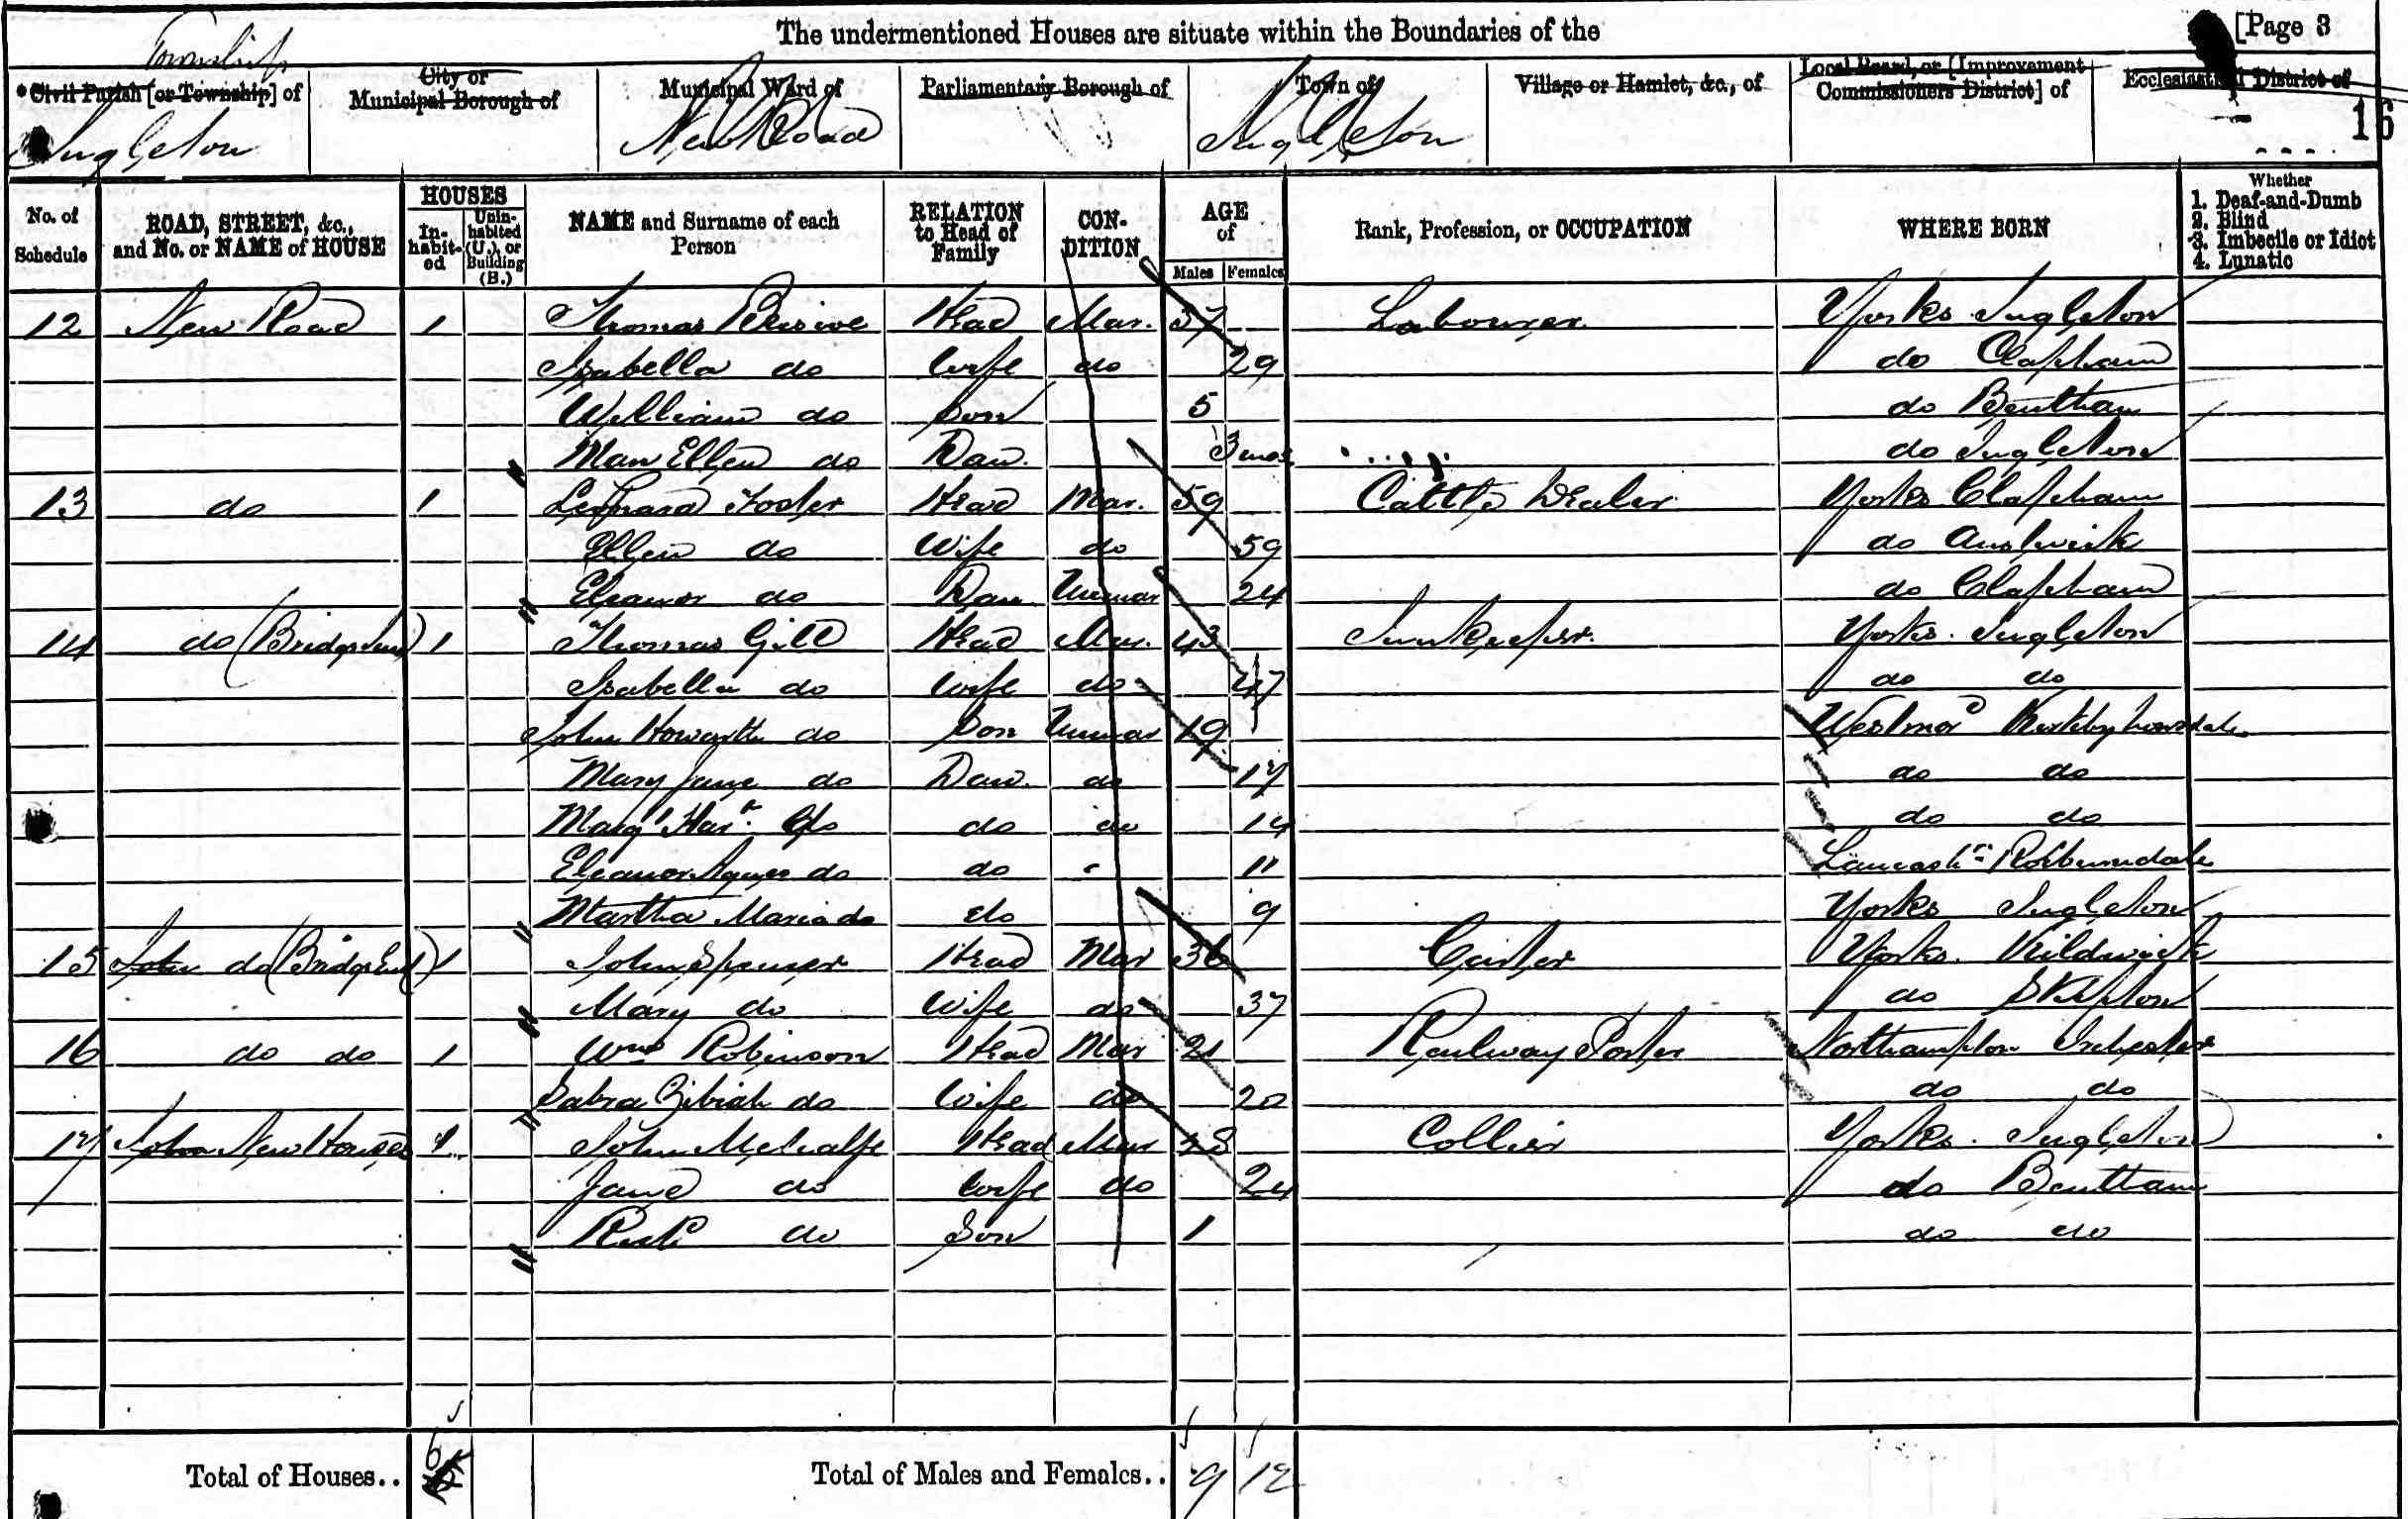 The undermentioned Houses are situate within the Boundaries of the [Page 3
Township
Civil Parish [or Township] of City or Municipal Borough of Municipal Ward of Parliamentary Borough of Town of Village or Hamlet, &c., of Local Board, or [Improvement Commissioners District] of Ecclesiastical District of
Ingleton New Road Ingleton 16
No. of Schedule ROAD, STREET, &c., and No. or NAME of HOUSE HOUSES Inhabited Uninhabited (U.), or Building (B.) NAME and Surname of each Person RELATION to Head of Family CONDITION AGE of Males Females Rank, Profession, or OCCUPATION WHERE BORN Whether 1. Deaf-and-Dumb 2. Blind 3. Imbecile or Idiot 4. Lunatic
12 New Road 1 Thomas Head Mar. 37 Labourer Yorks Ingleton
Isabella do Wife do 29 do Clapham
William do Son 5 do Bentham
Mary Ellen do Dau. 3 mos. do Ingleton
13 do 1 Leonard Foster Head Mar. 59 Cattle Dealer Yorks Clapham
Ellen do Wife do 59 do Austwick
Eleanor do Dau Unmar 24 do Clapham
14 do (Bridge Inn) 1 Thomas Gill Head Mar. 43 Innkeeper Yorks. Ingleton
Isabella do Wife do 47 do do
John Howarth do Son Unmar 19 Westmord Kirkby Lonsdale
Mary Jane do Dau. do 17 do do
Margt Harr. do do do 14 do do
Eleanor Agnes do do 11 Lancashr Roeburndale
Martha Maria do do 9 Yorks Ingleton
15 John do (Bridge End) 1 John Spenser Head Mar 36 Carter Yorks. Kildwick
Mary do Wife do 37 do Skipton
16 do do 1 Wm Robinson Head Mar 21 Railway Porter Northampton Irchester
Sabra Zibiah do Wife do 20 do do
17 John New Houses 1 John Metcalfe Head Mar 28 Collier Yorks. Ingleton
Jane do Wife do 24 do Bentham
do Son 1 do do
Total of Houses.. 6 Total of Males and Females.. 9 12